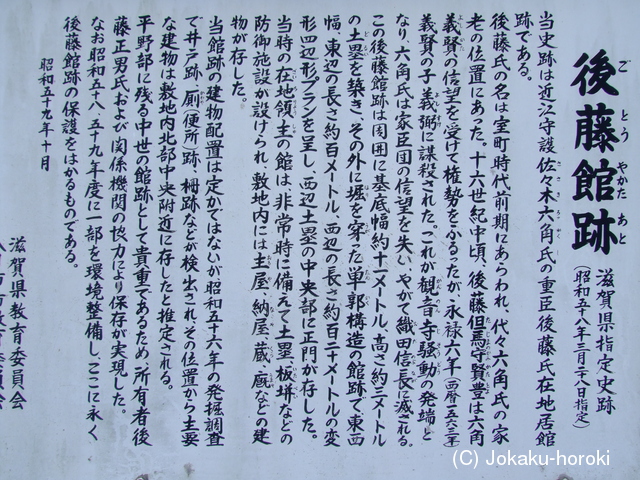 後藤館跡
ごとうやかたあと
滋賀県指定史跡
(昭和五十八年三月二八日指定)
当史跡は近江守護佐々木六角氏の重臣後藤氏在地居館
跡である。
後藤氏の名は室町時代前期にあらわれ、代々六角氏の家
老の位置にあった。十六世紀中頃、後藤但馬守賢豊は六角
義賢の信望を受けて権勢をふるったが、永禄六年(西暦一五六三年)
義賢の子義弼に謀殺された。これが観音寺騒動の発端と
なり、六角氏は家臣団の信望を失い、やがて織田信長に滅される。
この後藤館跡は周囲に基底幅約十一メートル、高さ約三メートル
の土塁を築き、その外に堀を穿た単郭構造の館跡で東西
幅、東辺の長さ約百メートル、西辺の長さ約百二十メートルの変
形四辺形プランを呈し、西辺土塁の中央部に正門が存した。
当時の在地領主の館は、非常時に備えて土塁、板塀などの
防御施設が設けられ、敷地内には主屋・納屋・蔵・廐などの建
物が存した。
当館跡の建物配置は定かではないが昭和五十六年の発掘調査
で井戸跡、厠(便所)跡、柵跡などが検出され、その位置から主要
な建物は敷地内北部中央附近に存したと推定される。
平野部に残る中世の館跡として貴重であるため、所有者後
藤正男氏および関係機関の協力により保存が実現した。
なお昭和五十八・五十九年度に一部を環境整備し、ここに永く
後藤館跡の保護をはかるものである。
昭和五十九年十月
滋賀県教育委員会
(C) Jokaku-horoki